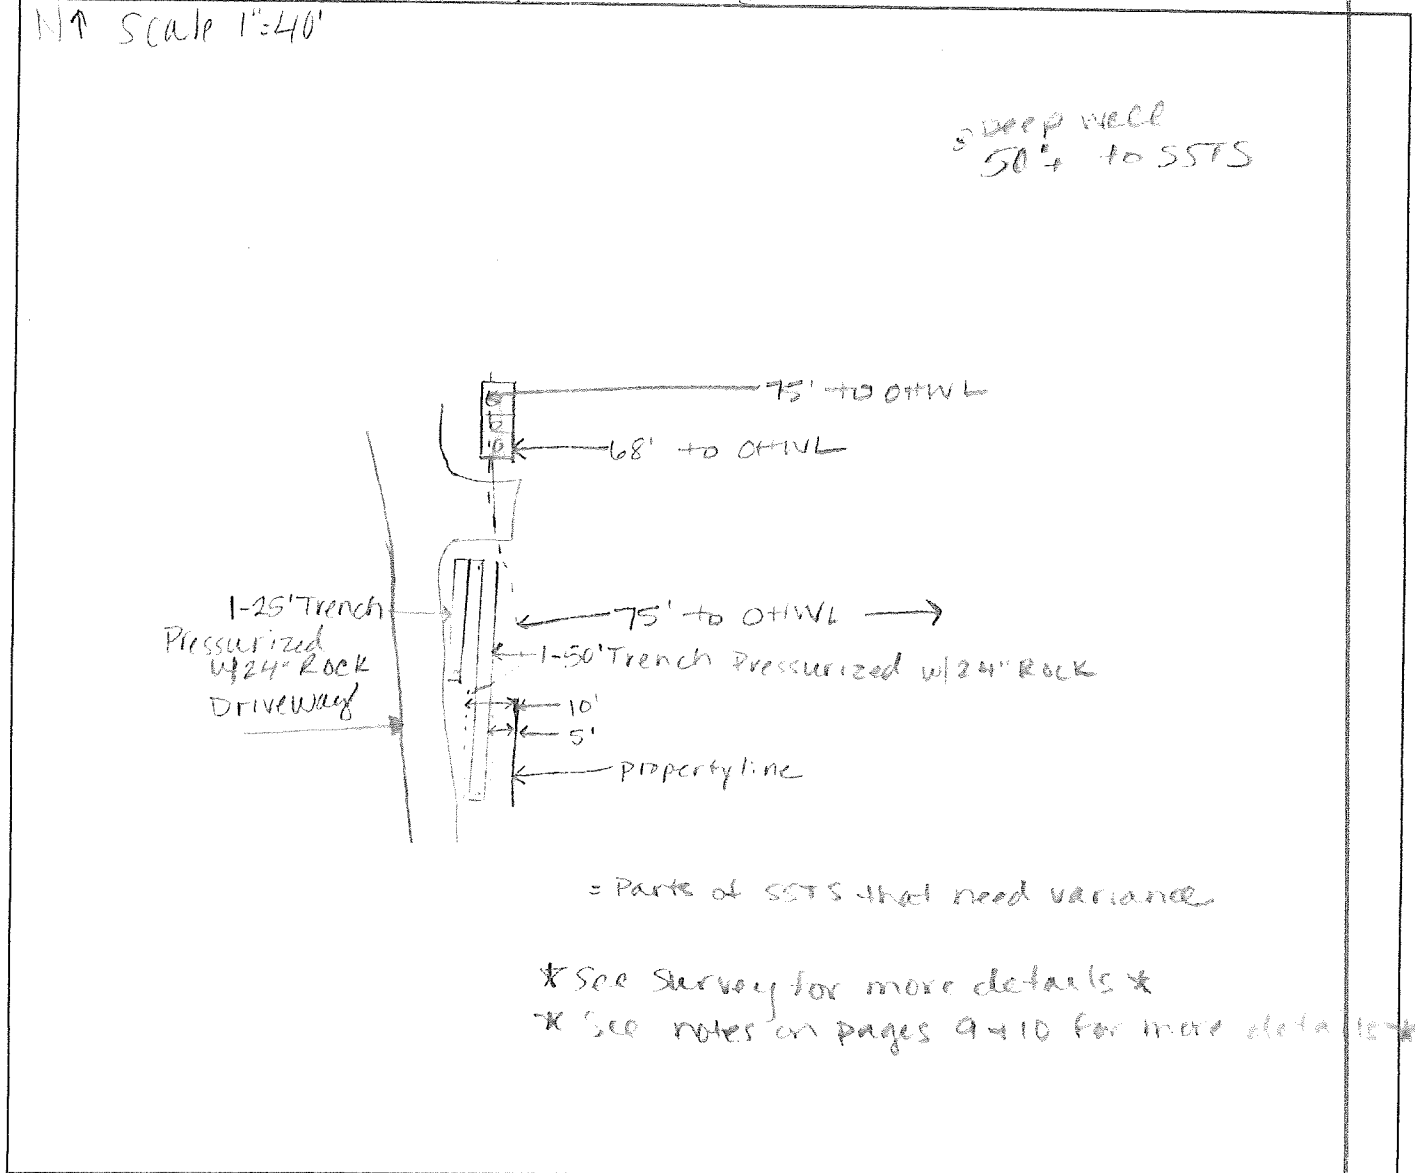 N↑ Scale 1"=40'
Deep well
50'+ to SSTS
75' to OHWL
68' to OHWL
1-25' Trench
Pressurized
w/24" Rock
75' to OHWL
1-50' Trench Pressurized w/24" Rock
Driveway
10'
5'
property line
= Parts of SSTS that need variance
* See Survey for more details *
* See notes on pages 9+10 for more details *